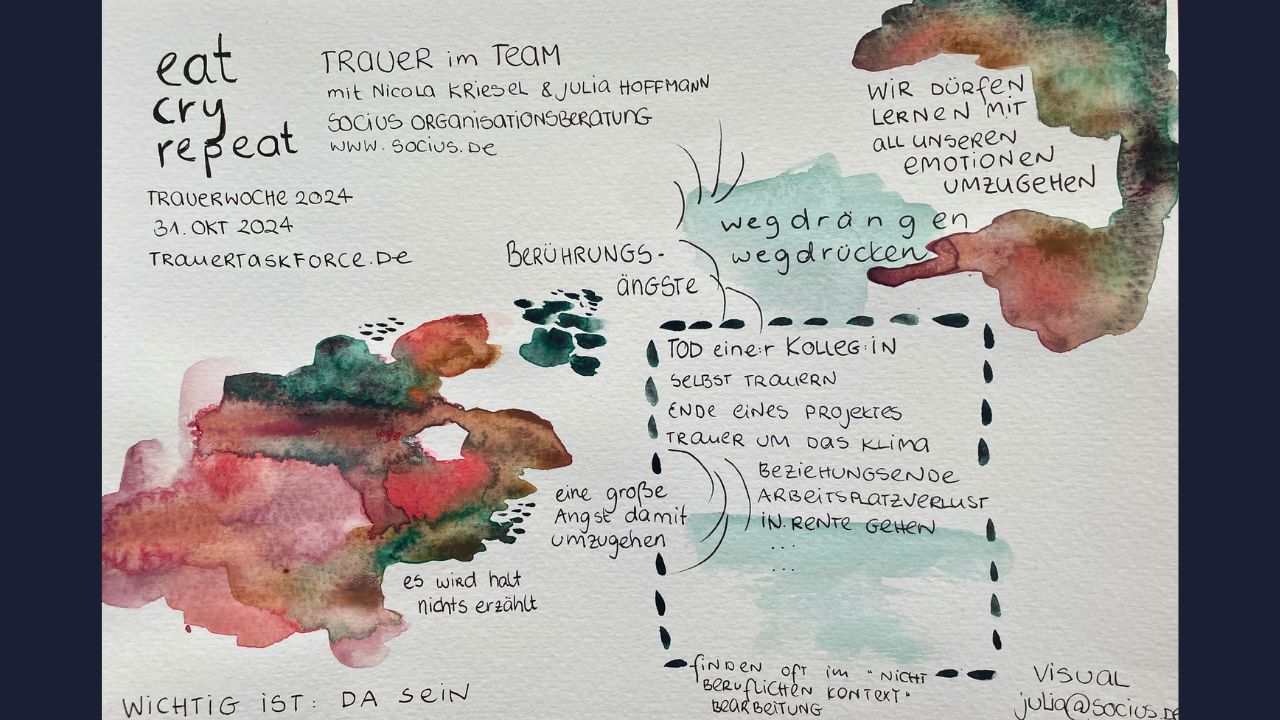 eat
cry
repeat
TRAUER im TEAM
mit Nicola KRieseL & Julia HOFFMANN
SOCiUS ORGanisationsBERatung
www.socius.de
TRAUERWOCHE 2024
31. OKT 2024
TRAUERTASKFORCE.De
WiR DÜRfEN
LERNEN MiT
all UNSEREN
EMOTIONEN
UMZUGEHEN
wegdrängen
wegdrücken
BERÜHRUNGS-
ÄNGSTE
TOD eine:r KOLLEG:iN
SELBST TRAUERN
ENDE eiNES PROJEKTES
TRAUER UM DAS KLiMA
BEZiEHUNGSENDE
ARBEiTSPLATZVERLUST
iN RENTE GEHEN
...
...
eine große
Angst damit
umzugehen
es wird halt
nichts erzählt
finden oft im "NiCHT
BERUFLiCHEN KONTEXT"
BEARBEiTUNG
WiCHTiG iST: DA SEiN
ViSUAL
julia@socius.de